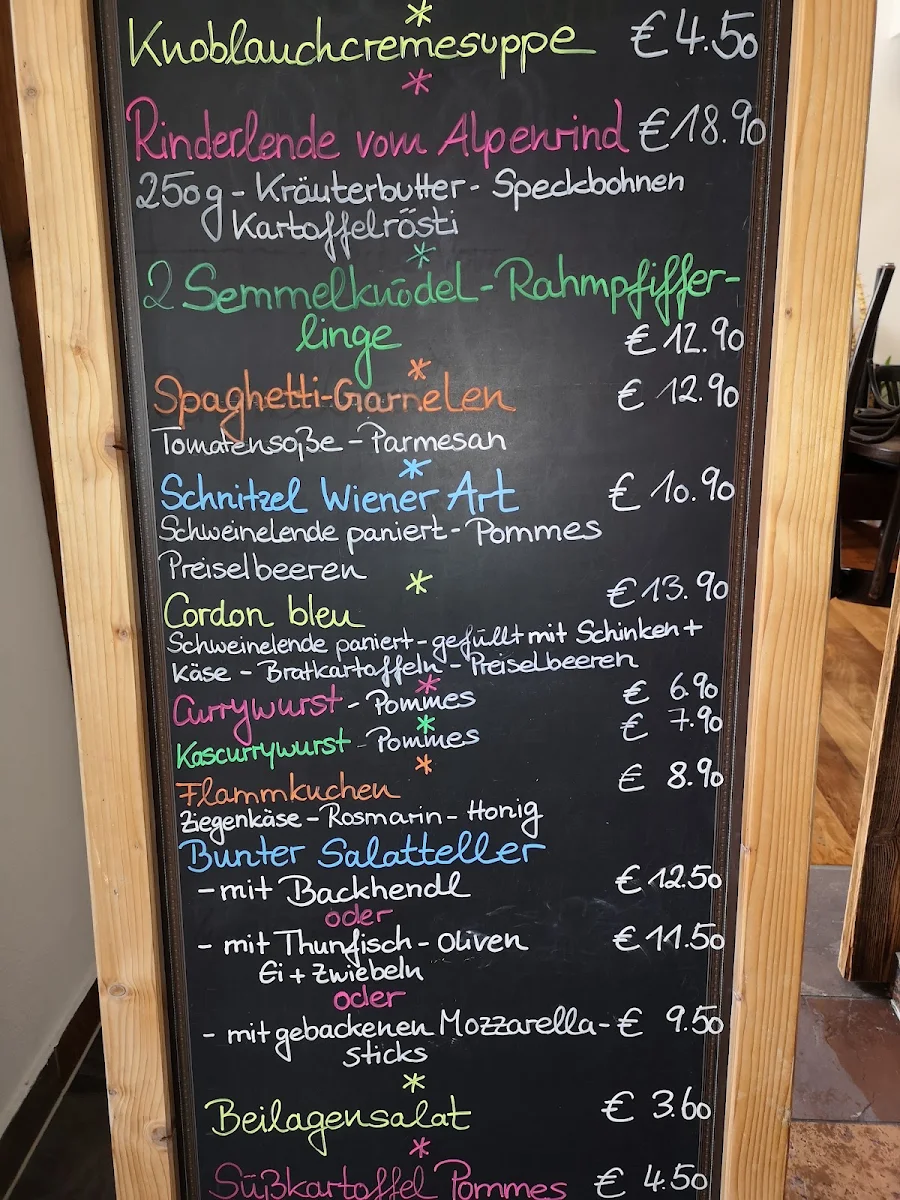 Knoblauchcremesuppe € 4.50
Rinderlende vom Alpenrind € 18.90
250g - Kräuterbutter - Speckbohnen
Kartoffelrösti
2 Semmelknödel - Rahmpfiffer-
linge € 12.90
Spaghetti-Garnelen € 12.90
Tomatensoße - Parmesan
Schnitzel Wiener Art € 10.90
Schweinelende paniert - Pommes
Preiselbeeren
Cordon bleu € 13.90
Schweinelende paniert - gefüllt mit Schinken +
Käse - Bratkartoffeln - Preiselbeeren
Currywurst - Pommes € 6.90
Kascurrywurst - Pommes € 7.90
Flammkuchen € 8.90
Ziegenkäse - Rosmarin - Honig
Bunter Salatteller
- mit Backhendl € 12.50
oder
- mit Thunfisch - Oliven € 11.50
Ei + Zwiebeln
oder
- mit gebackenen Mozzarella- € 9.50
sticks
Beilagensalat € 3.60
Süßkartoffel Pommes € 4.50